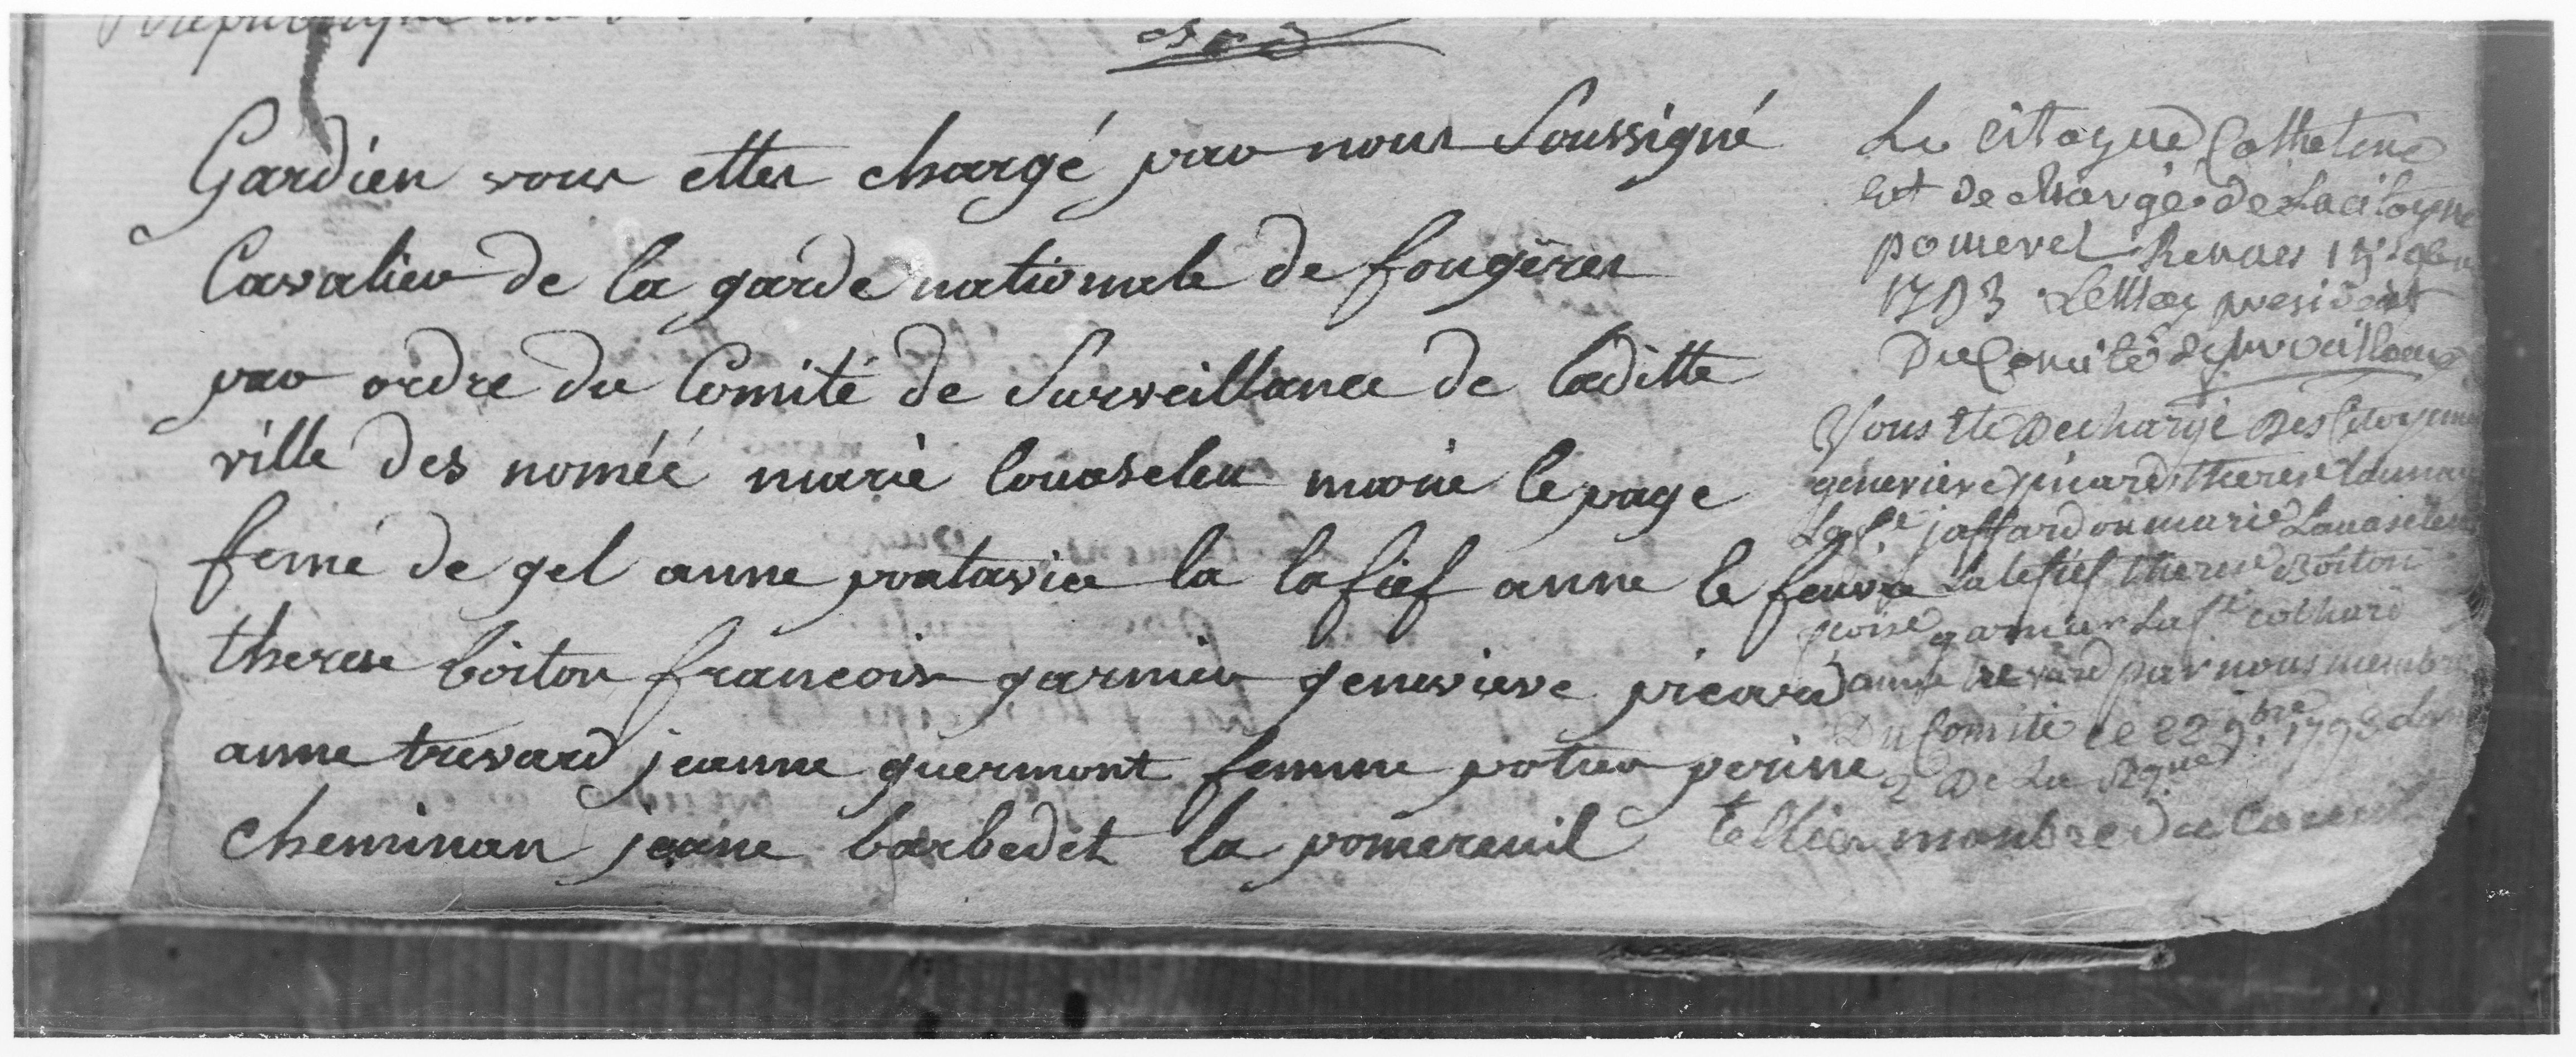 Republique
Gardien vous ettes chargé par nous Soussigné
Cavalier de la garde nationale de fougères
par ordre du Comité de Surveillance de laditte
ville des nomée marie louaseleu marie le page
femé de gel anne pontavice la lafief anne le feuvre
therese boiton francoise garnier genevieve picard
anne trevard jeanne guermont femme potier perine
cheminan jeanne barbedet la pomereuil
Le citoyen
Est de charge de La citoyene
pomerel Renes
1793 president
Du Comité de surveillance
Vous ete decharge Des Citoyennes
genevieve picard therese launay
La fe jaffard ou marie Louaseleu
La lefief therese Boiton
coise garnier La fe cochard
anne trevard par nous membre
Du Comité le 22 9bre 1793
2 De La
tellier manbre du Comité